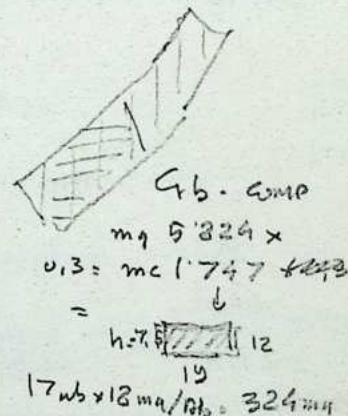 comp
mq 5'824 x
0,3 = mc 1'747
=
h=7,5 12
19
17 x 18 mq / = 324 mq